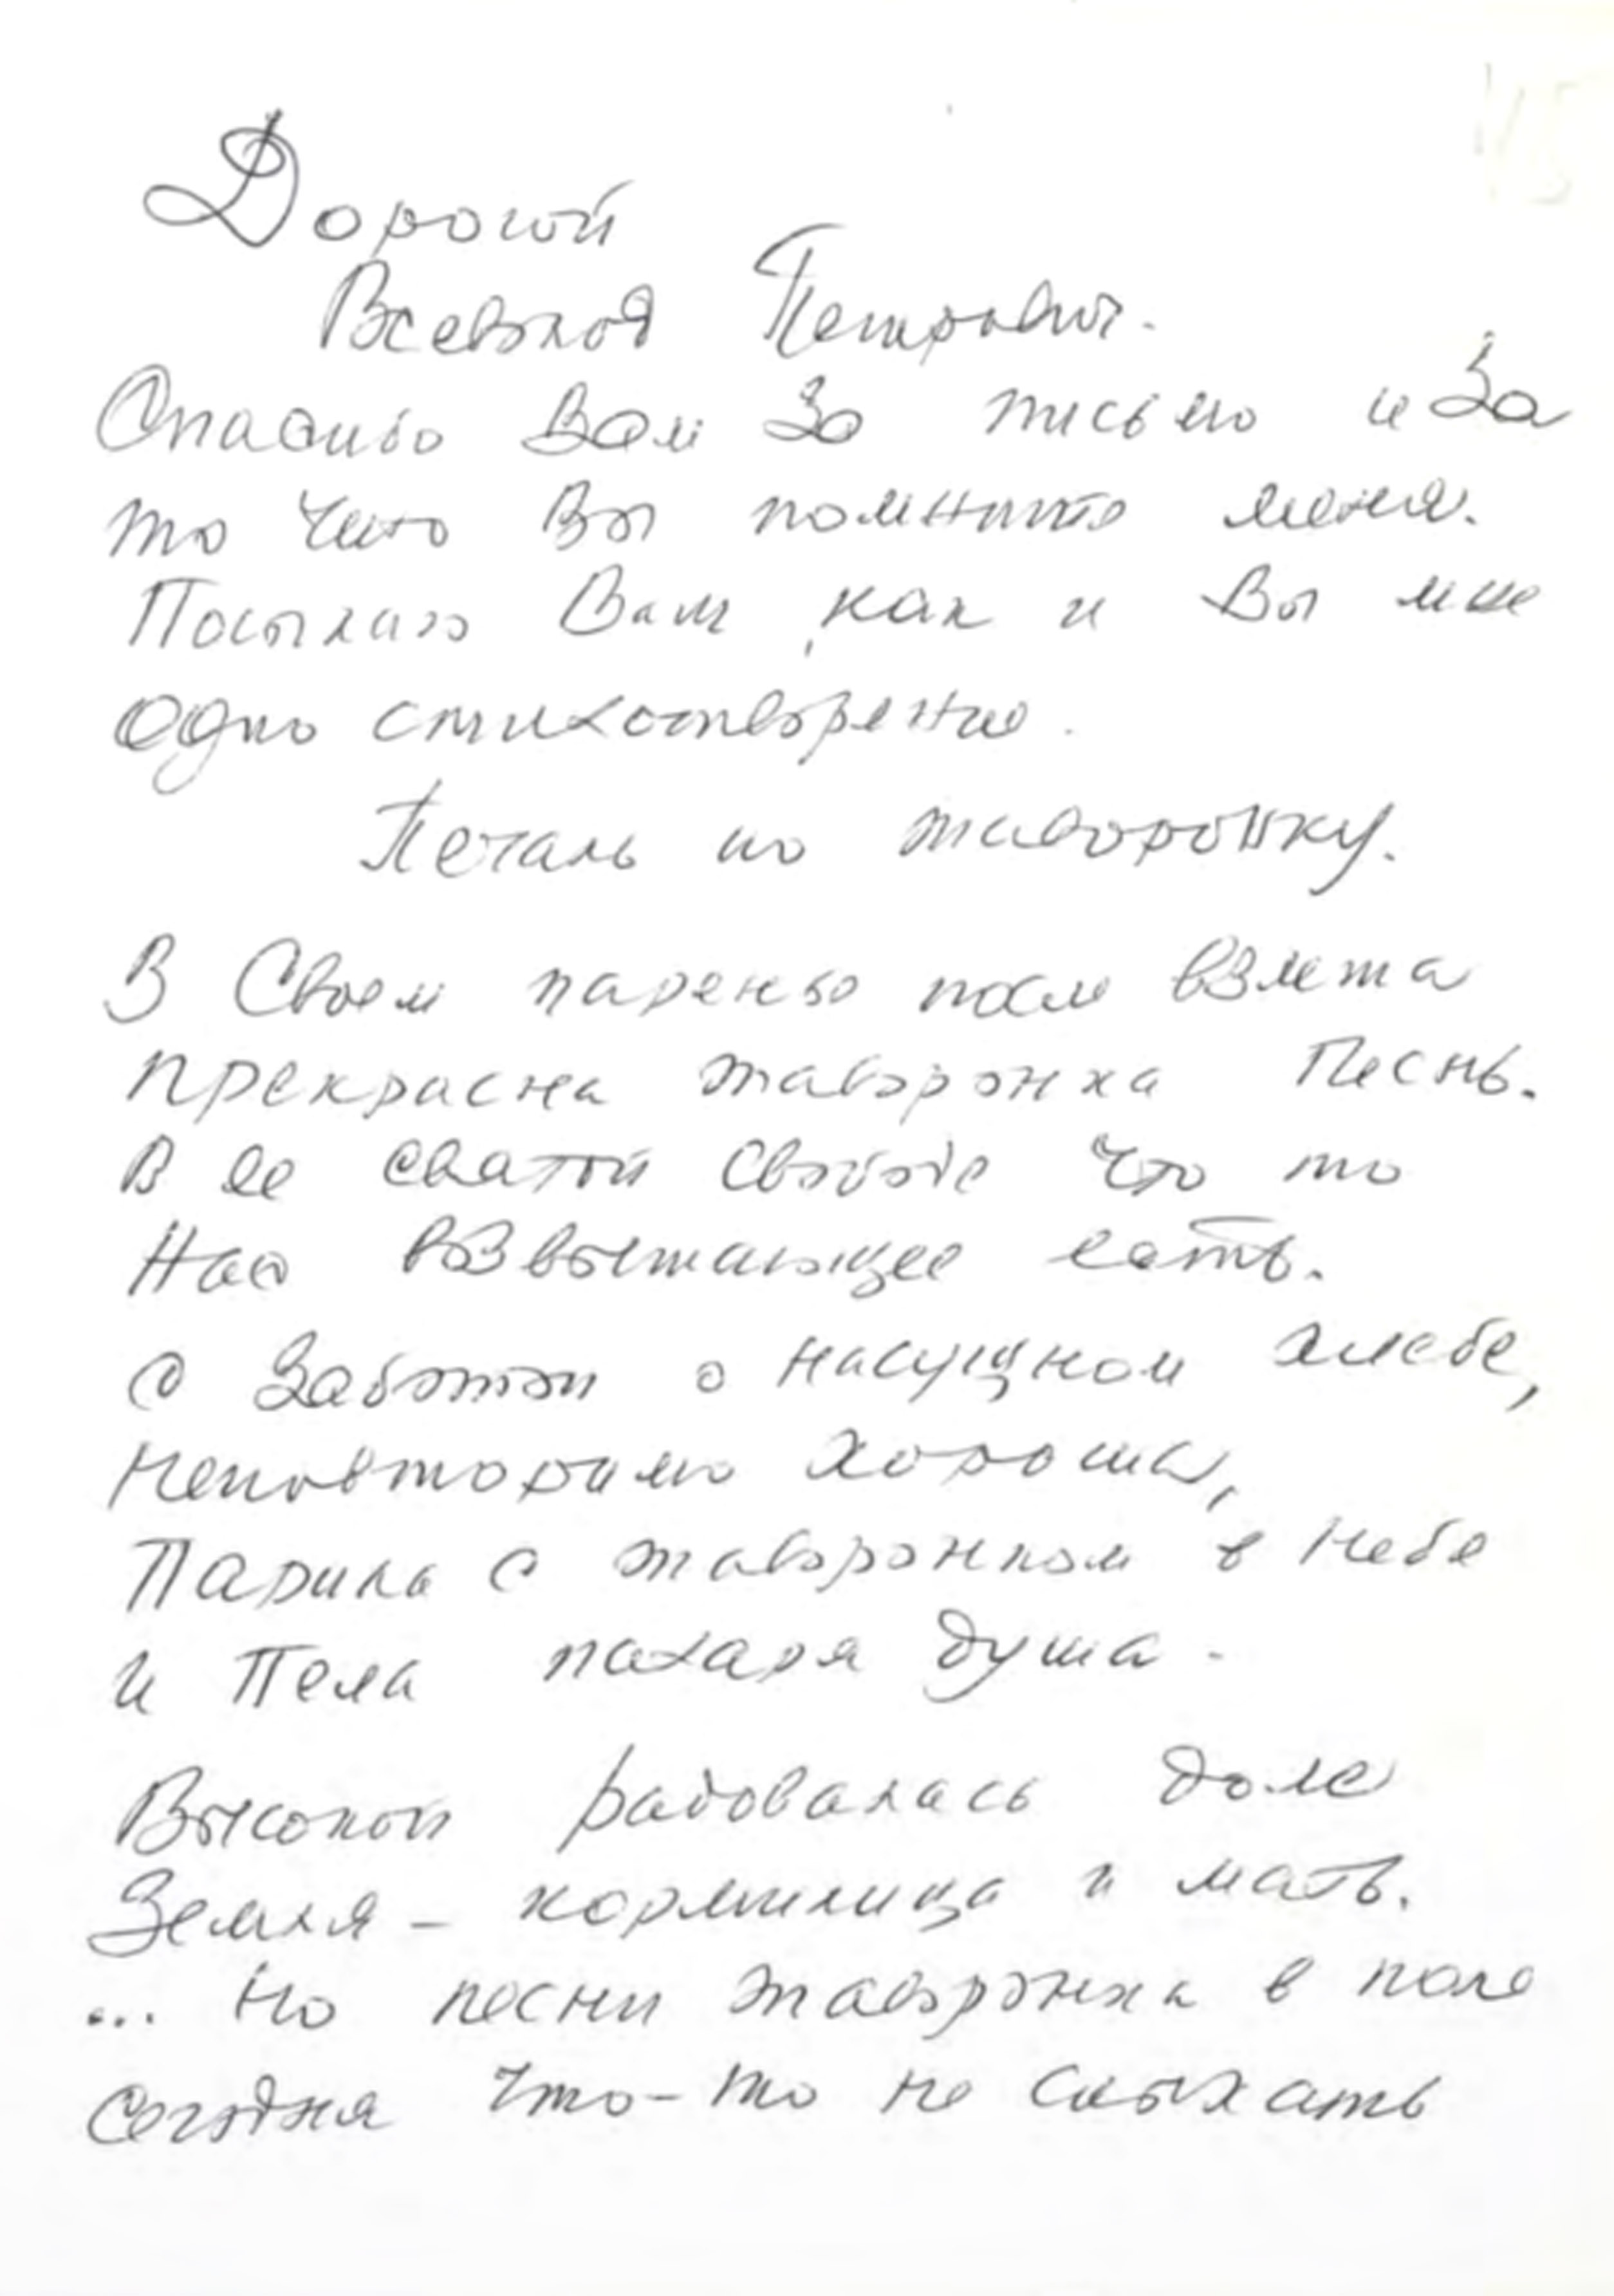 Дорогой
Всеволод Петрович.
Спасибо Вам За письмо и За
то что Вы помните меня.
Посылаю Вам, как и Вы мне
одно стихотворение.
Печаль по жаворонку.
В Своем паренье после взлета
прекрасна жаворонка Песнь.
В ее святой свободе что то
Нас возвышающее есть.
С Заботой о насущном хлебе,
неповторимо хороша,
Парила с жаворонком в небе
и Пела пахаря душа.
Высокой радовалась доле
Земля – кормилица и мать.
... Но песни жаворонка в поле
Сегодня что-то не слыхать